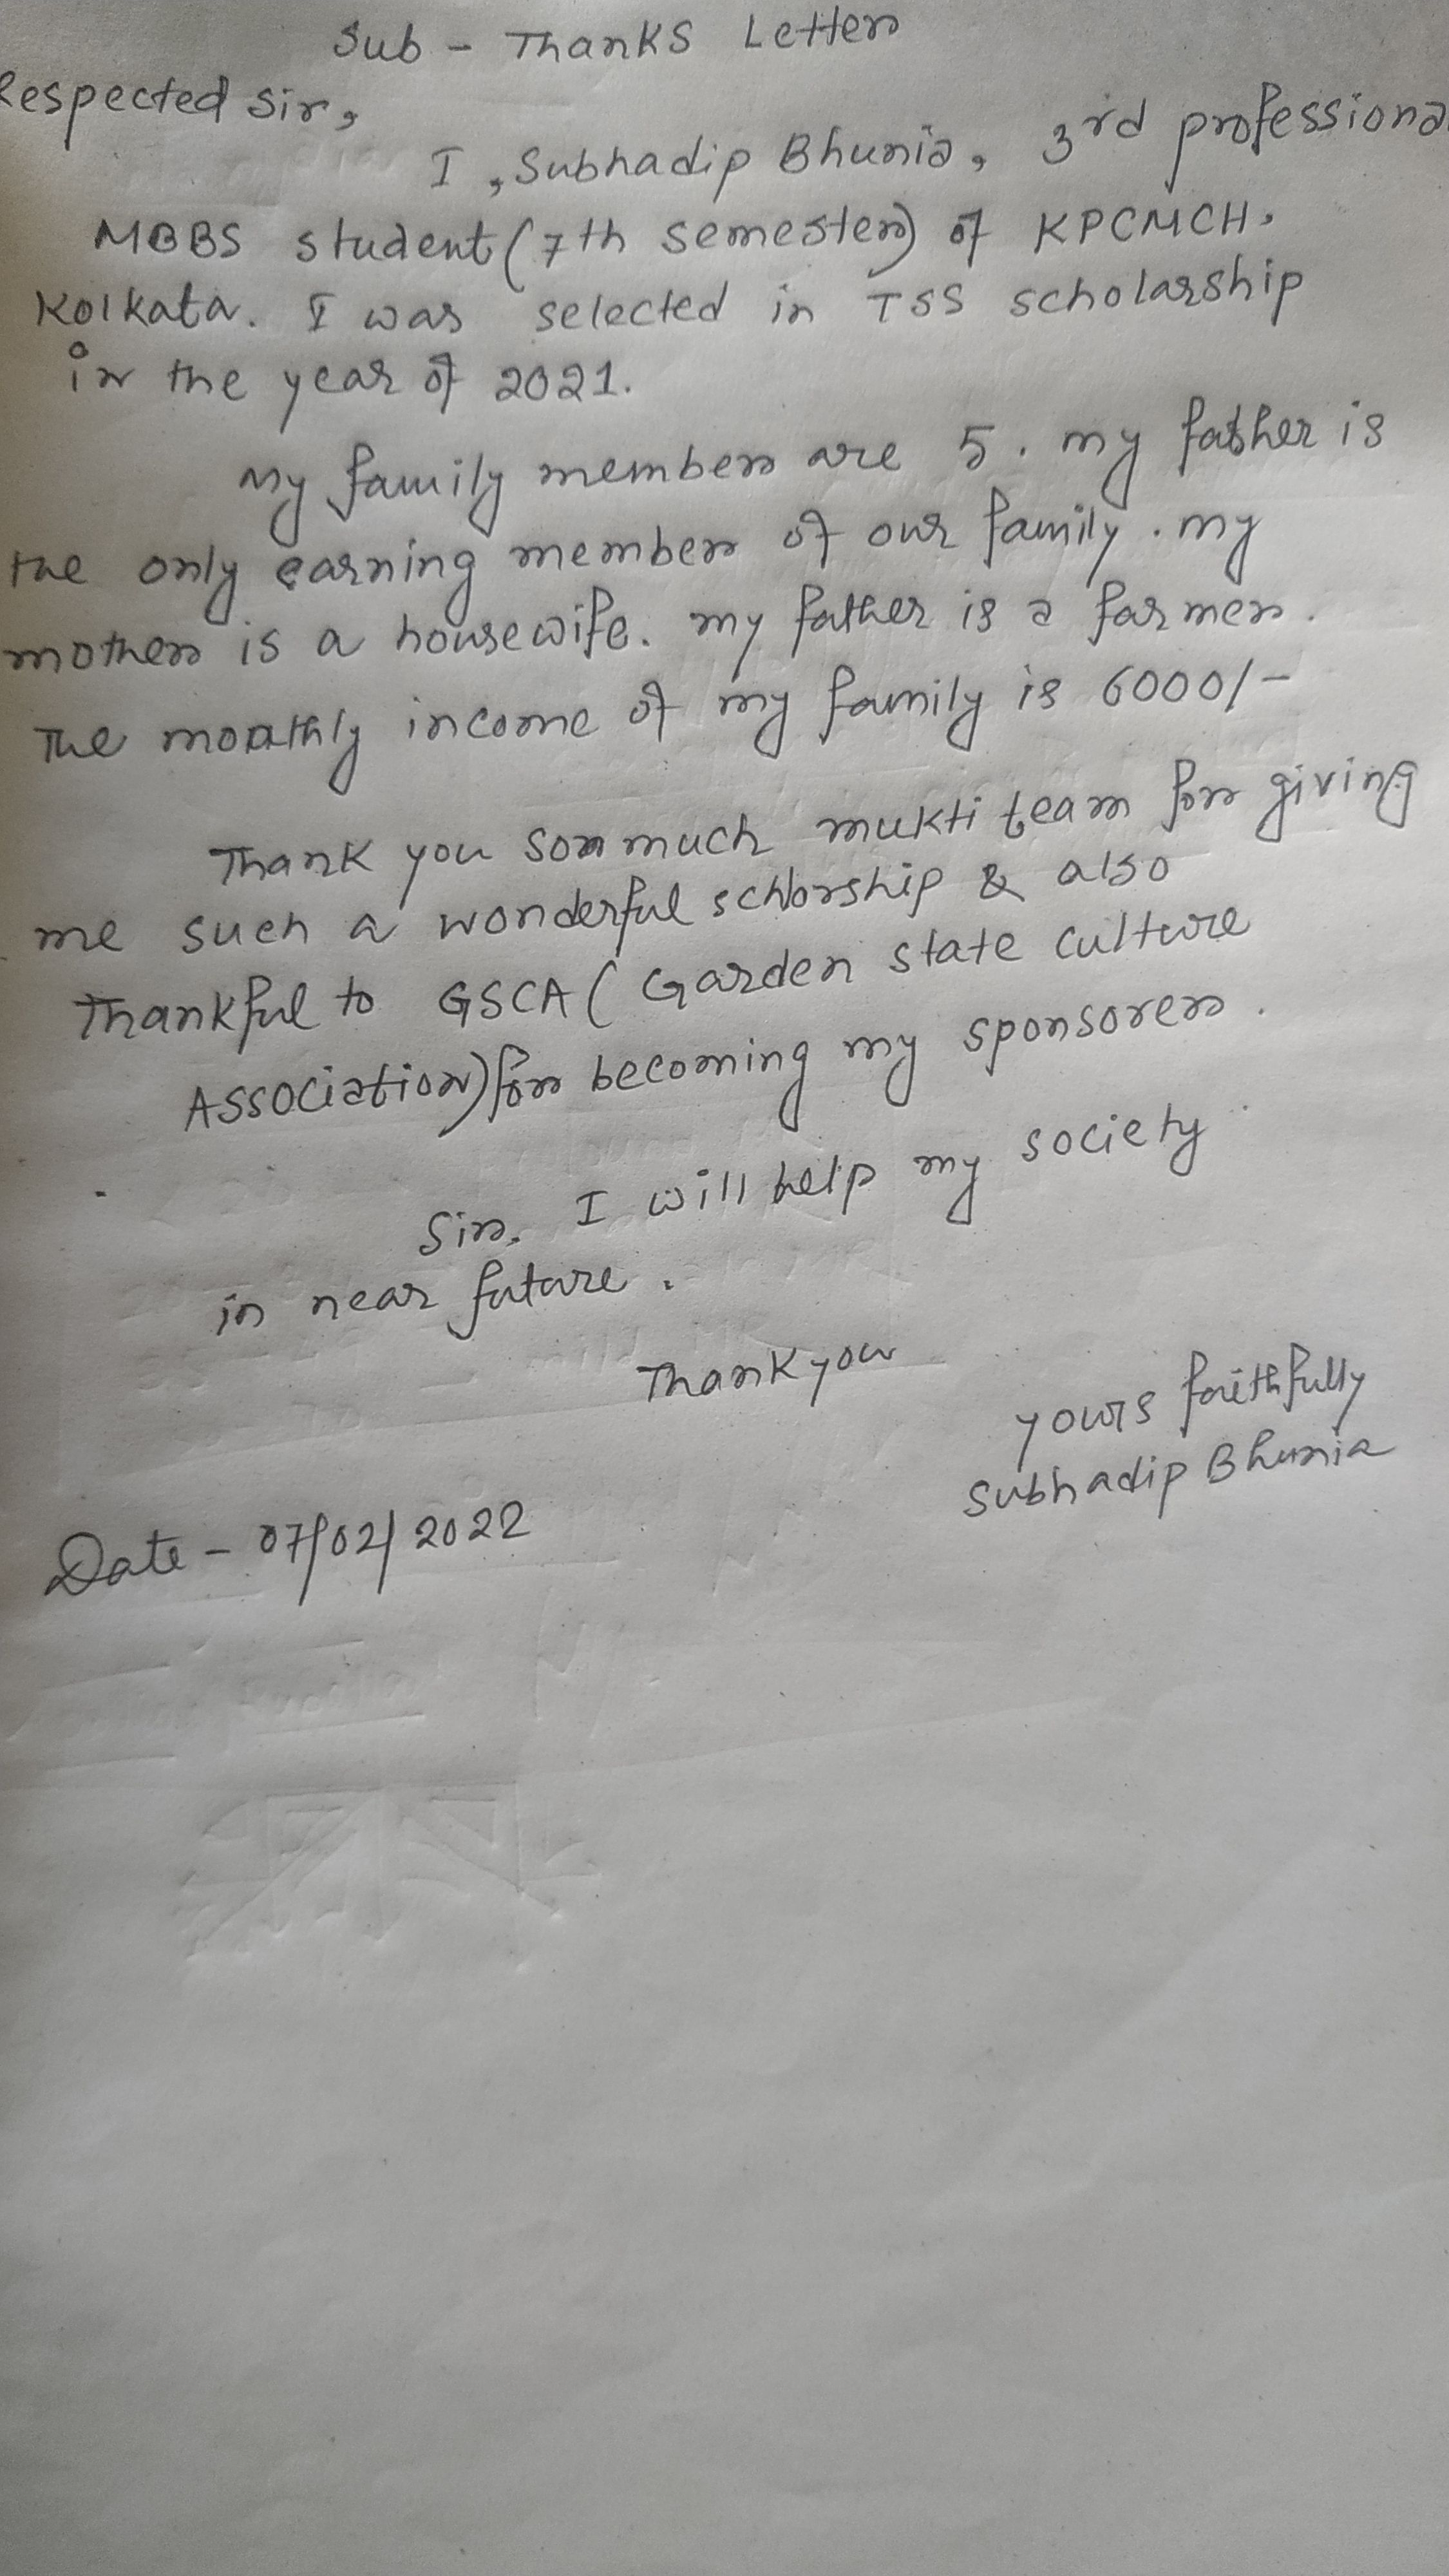 Sub - Thanks Letter
Respected Sir,
I, Subhadip Bhunia, 3rd professiona
MBBS student (7th semester) of KPCMCH,
Kolkata. I was selected in TSS scholarship
in the year of 2021.
My family member are 5. my father is
the only earning member of our family. my
mother is a housewife. my father is a farmer.
The monthly income of my family is 6000/-
Thank you so much mukti team for giving
me such a wonderful schlorship & also
Thankful to GSCA (Garden state culture
Association) for becoming my sponsorer.
Sir, I will help my society
in near future.
Thank you
yours faithfully
Subhadip Bhunia
Date - 07/02/2022